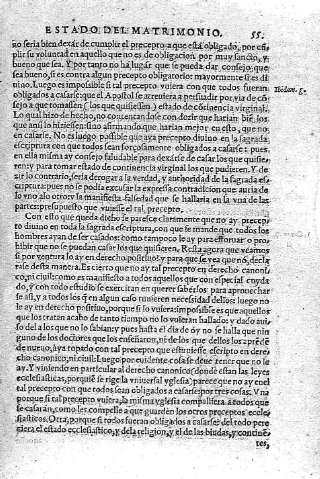 ESTADO DEL MATRIMONIO. 55.
no seria bien dexar de cumplir el precepto a que está obligado, por cũ-
plir su voluntad en aquello que no es de obligacion por muy sancto, y
bueno que sea. Y por tanto no ha lugar que se pueda dar consejo, que
sea bueno, si es contra algun precepto obligatorio: mayormente si es di
uino. Luego es impossible si tal precepto vuiera con que todos fueran
obligados a casarse: que el Apostol se atreuiera a persuadir por via de cõ
sejo a que tomassen (los que quisiessen) estado de cõtinencia virginal.
Lo qual hizo de hecho, no contentandose con dezir que harian biẽ los
que ansi lo hiziessen: sino afirmando que harian mejor en esto, que no
en casarse. No es luego possible que aya precepto diuino en la sagrada
escriptura con que todos sean forçosamente obligados a casarse: pues
en ella misma ay consejo saludable para dexarse de casar los que quisie
ren, y para tomar estado de continencia virginal los que pudieren. Y de
zir lo contrario, seria derogar a la verdad, y autoridad de la sagrada es-
criptura: pues no se podia excusar la expressa contradicion que auria de
lo vno alo otro, y la manifiesta falsedad que se hallaria en la vna de las
partes: presupuesto que vuiesse el tal precepto.
Con esto que queda dicho se paresce claramente que no ay precep-
to diuino en toda la sagrada escriptura, con que se mande que todos los
hombres ayan de ser casados: como tampoco le ay para estoruar o pro-
hibir que no se puedan casar los que quisieren. Resta agora que veamos
si por ventura lo ay en derecho positiuo: y para que se vea que nò, decla
rase desta manera. Es cierto que no ay tal precepto en derecho canoni-
co, ni ciuil: como es manifiesto a todos aquellos que con especial cuyda
do, y con todo estudio se exercitan en querer saberlos para aprouechar
se assi, y a todos los q̃ en algun caso tuuieren necessidad dellos: luego no
le ay en derecho positiuo, porque si lo vuiera: impossible es que aquellos
que los tratan acabo de tanto tiempo no lo vuieran hallado: y dado aui-
so del a los que no lo sabian: y pues hasta el dia de oy no se halla que nin
guno de los doctores que los enseñaron, ni de los que dellos los aprẽdẽ
de nueuo, aya topado con tal precepto que estuuiesse escripto en dere-
cho canonico, ni ciuil: Luego por euidente cosa se deue tener que no le
ay. Y viniendo en particular al derecho canonico (donde estan las leyes
ecclesiasticas, porque se rige la vniuersal yglesia) parece que no ay enel
tal precepto con que todos sean obligados a casarse: por tres cosas. Vna
porque si tal precepto vuiera, la misma yglesia compulliera a todos que
se casaran, como les compelle a que guarden los otros preceptos eccle-
siasticos. Otra, porque si todos fueran obligados a casarse: del todo pere
ciera el estado ecclesiastico, y de la religion, y el de las biudas, y continẽ
tes,